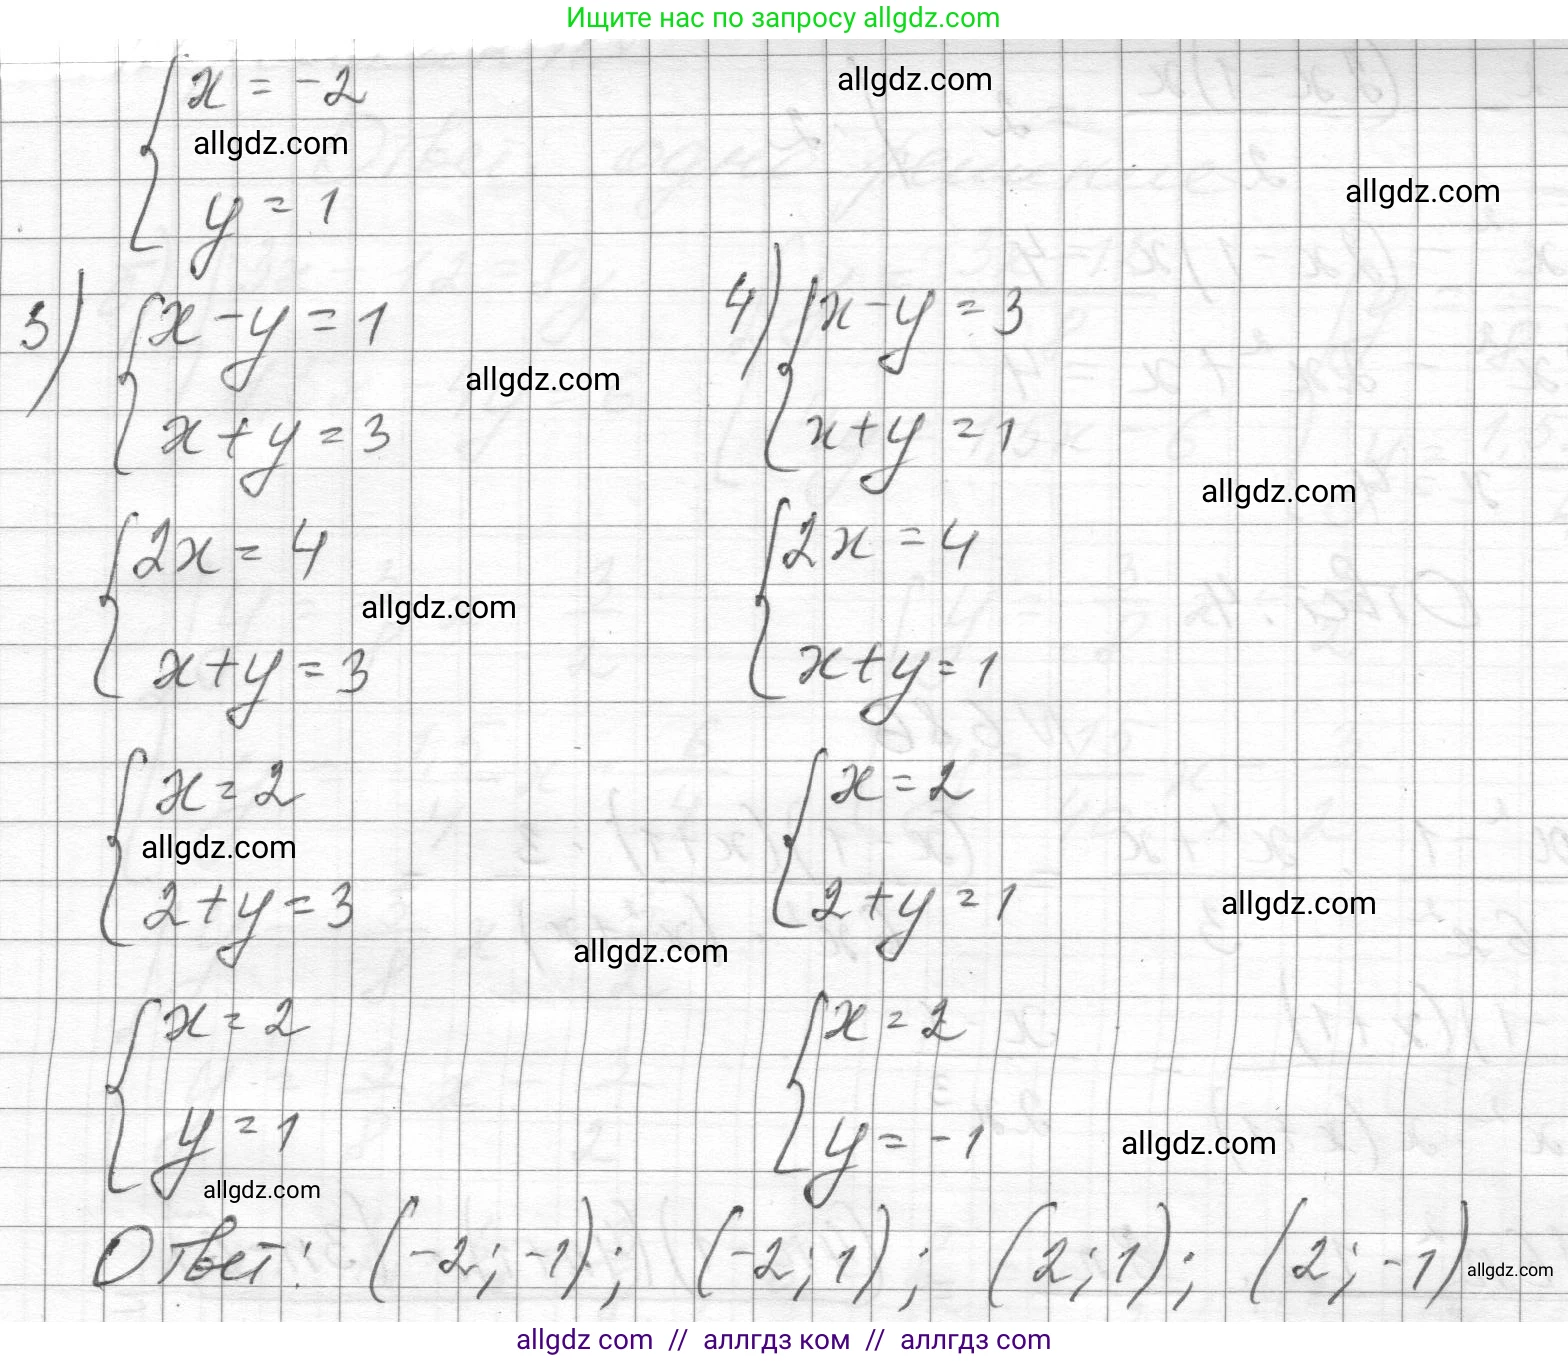 Ищите нас по запросу allgdz.com
x = -2
allgdz.com
allgdz.com
y = 1
allgdz.com
3) x - y = 1
x + y = 3
allgdz.com
2x = 4
allgdz.com
x + y = 3
x = 2
allgdz.com
2 + y = 3
allgdz.com
x = 2
y = 1
allgdz.com
4) x - y = 3
x + y = 1
allgdz.com
2x = 4
x + y = 1
x = 2
2 + y = 1
allgdz.com
x = 2
y = -1
allgdz.com
Ответ: (-2; -1); (-2; 1); (2; 1); (2; -1) allgdz.com
allgdz com // аллгдз ком // аллгдз com